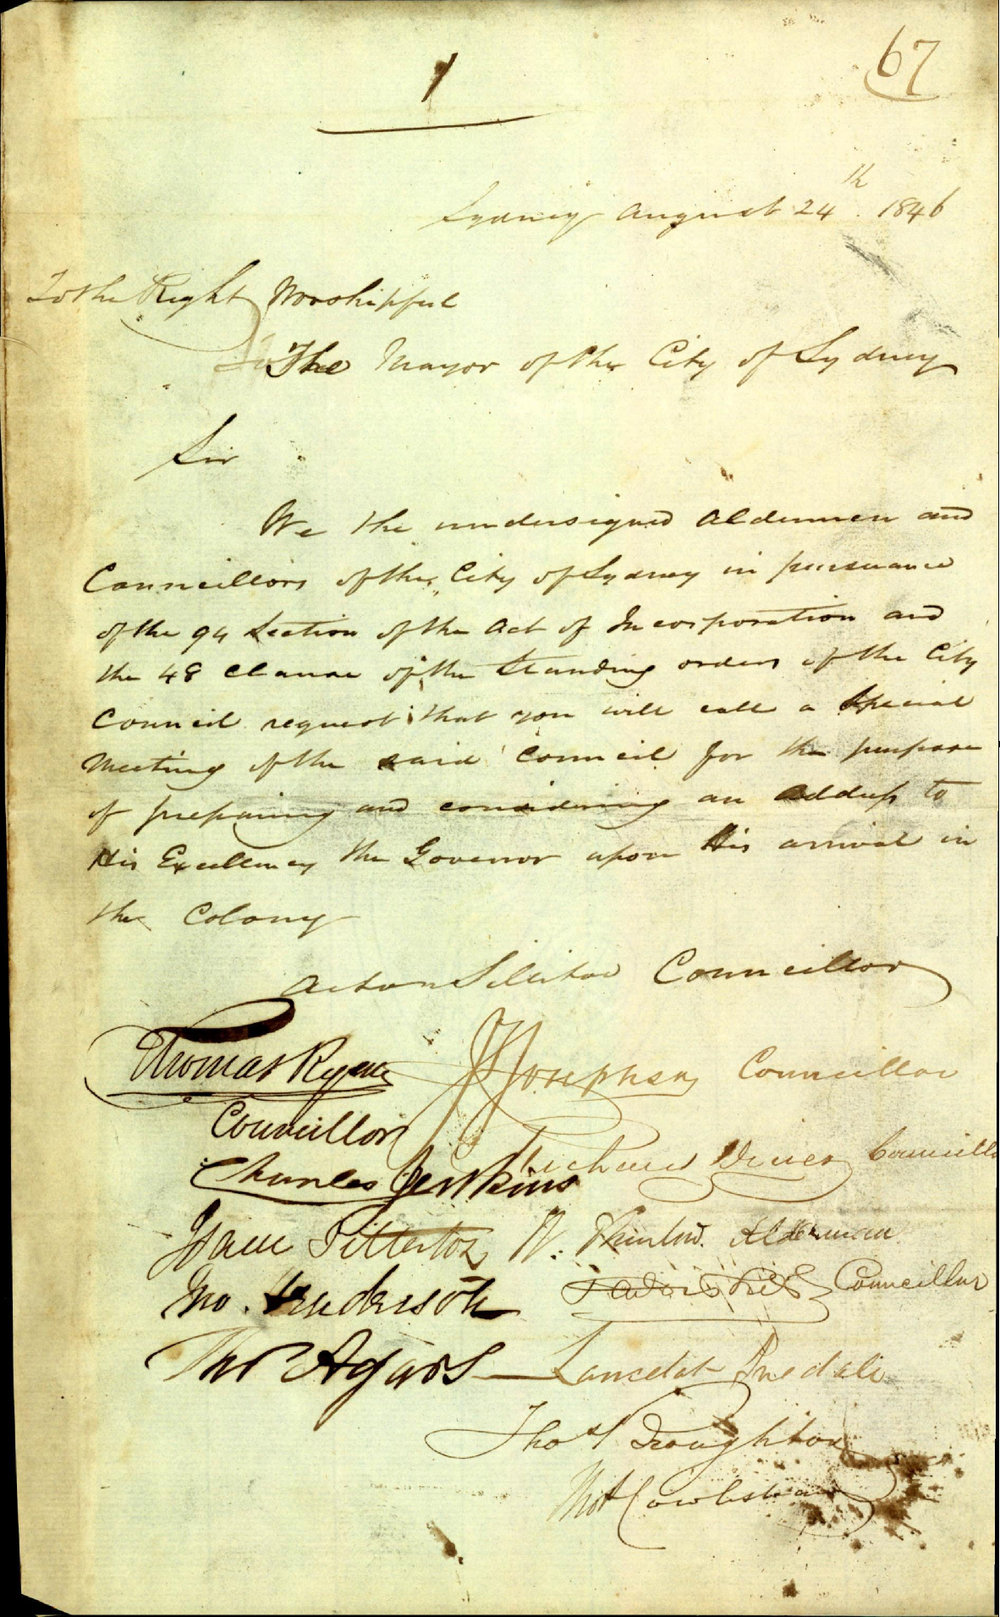 1
67
Sydney August 24th. 1846
To the Right Worshipful
The Mayor of the City of Sydney
Sir
We the undersigned Aldermen and
Councillors of the City of Sydney in pursuance
of the 94 Section of the Act of Incorporation and
the 48 Clause of the Standing orders of the City
Council request that you will call a Special
Meeting of the said Council for the purpose
of preparing and considering an Address to
His Excellency the Governor upon His arrival in
the Colony
Acton Sillitoe Councillor
Thomas Ryan
Councillor
J Josephson Councillor
Charles Jenkins
Richard Driver Councillor
Isaac Titterton
W. Thurlow. Alderman
Jno. Henderson
Councillor
Thos Agars
Lancelot Iredale
Thos Broughton
Thos Cowlishaw